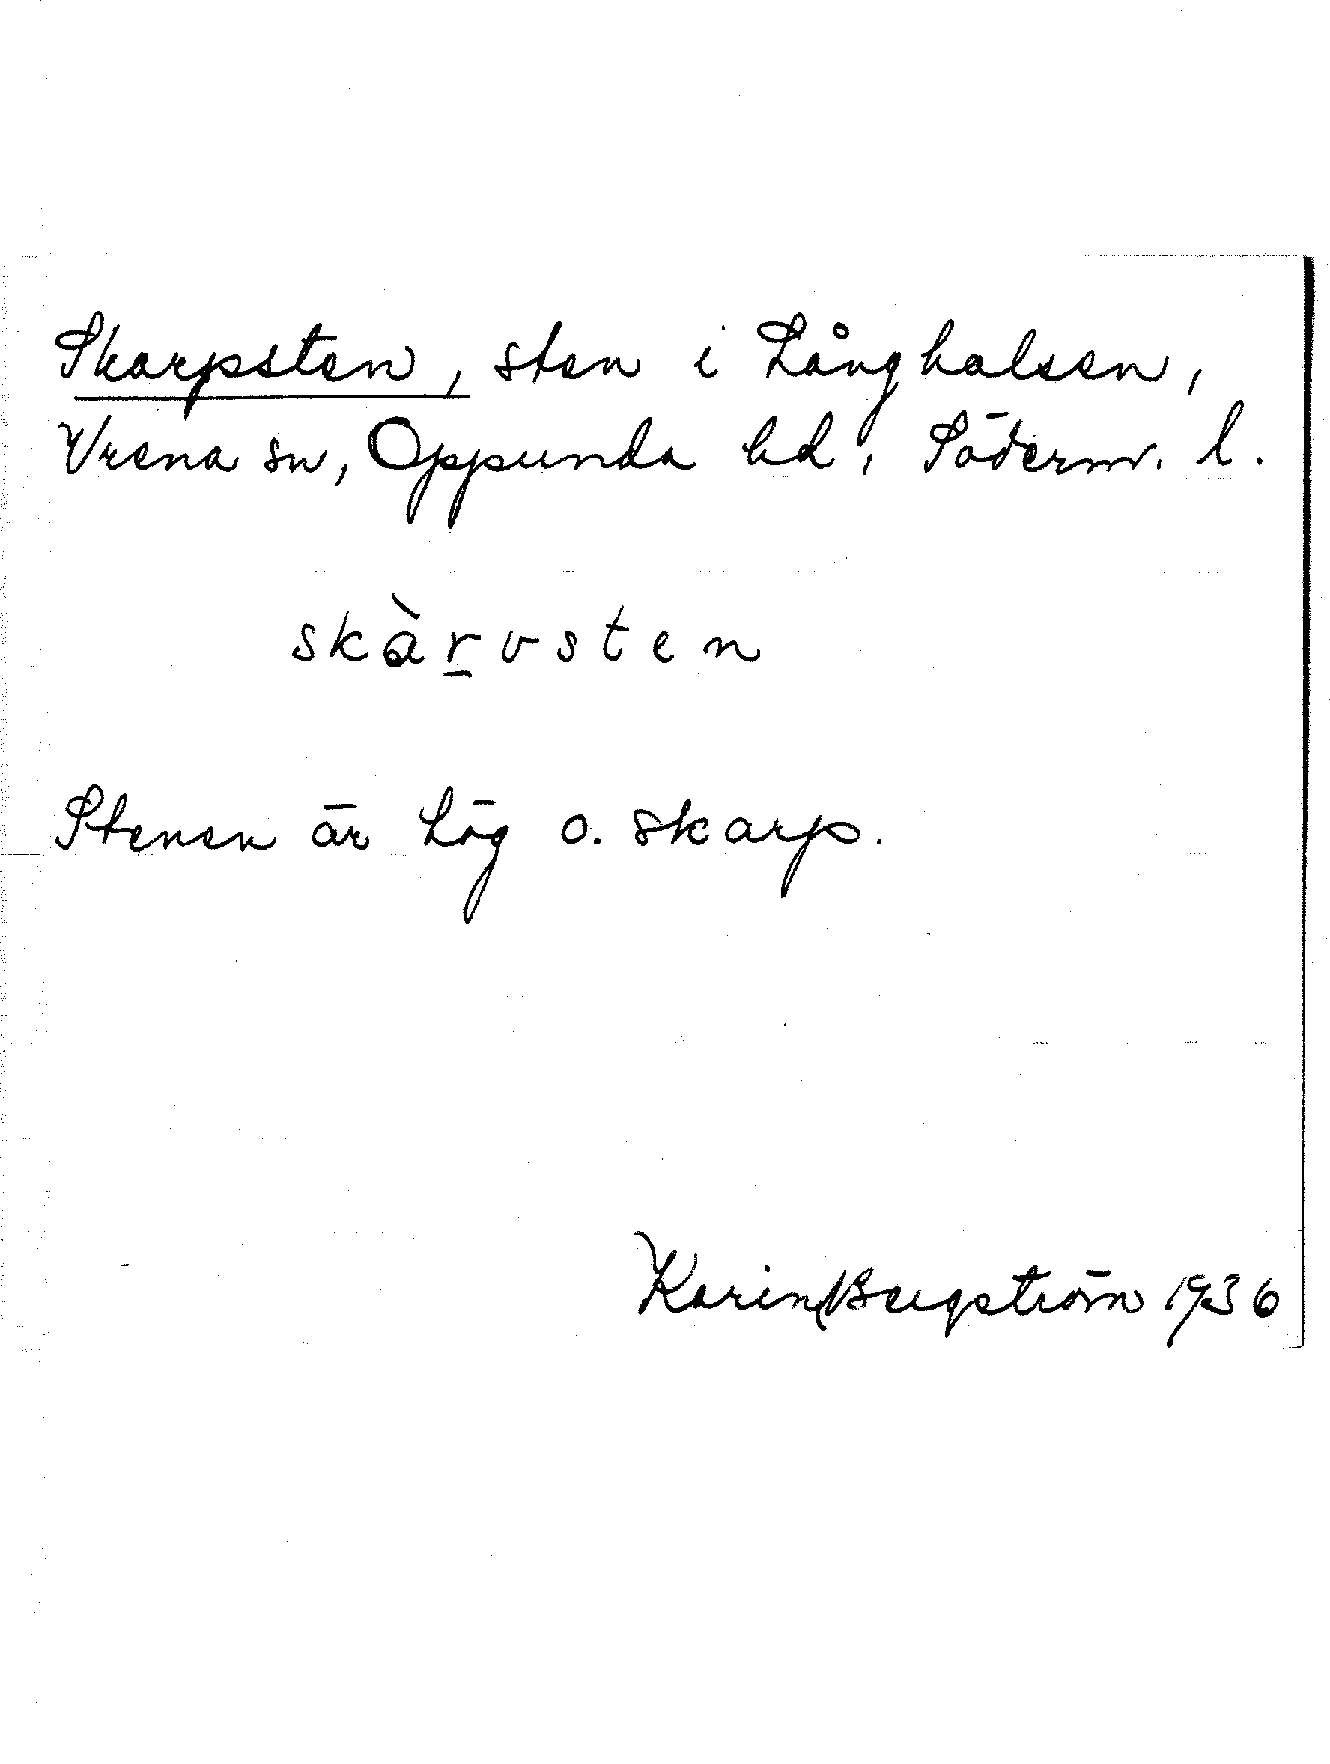 Skarpsten, sten i Långhalsen,
Vrena sn, Oppunda hd, Söderm. l.
skàr̲vsten
Stenen är hög o. skarp.
Karin Bergström 1936